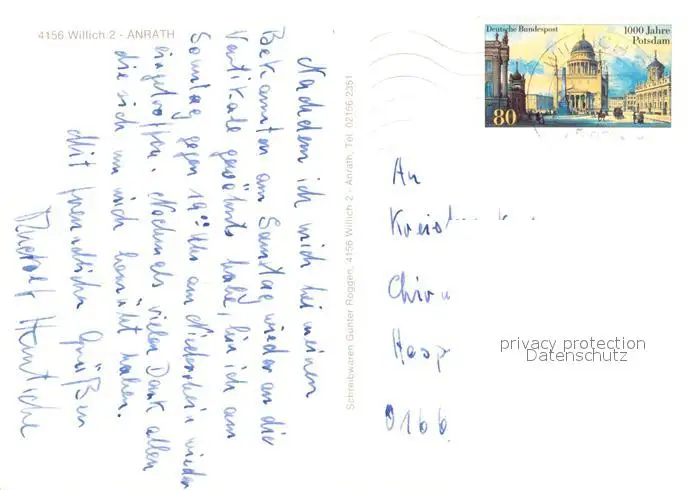 4156 Willich 2 - ANRATH
Nachdem ich mich bei meinen
Bekannten am Samstag wieder an die
Vertikale gewöhnt habe, bin ich am
Sonntag gegen 19 Uhr am Niederrhein wieder
eingetroffen. Nochmals vielen Dank allen
die sich um mich bemüht haben.
Mit freundlichen Grüßen
Schreibwaren Günter Roggen, 4156 Willich 2 - Anrath, Tel. 02156/2351
Deutsche Bundespost
1000 Jahre
Potsdam
80
An
Kreis
Chiru
Hosp
0166
privacy protection
Datenschutz